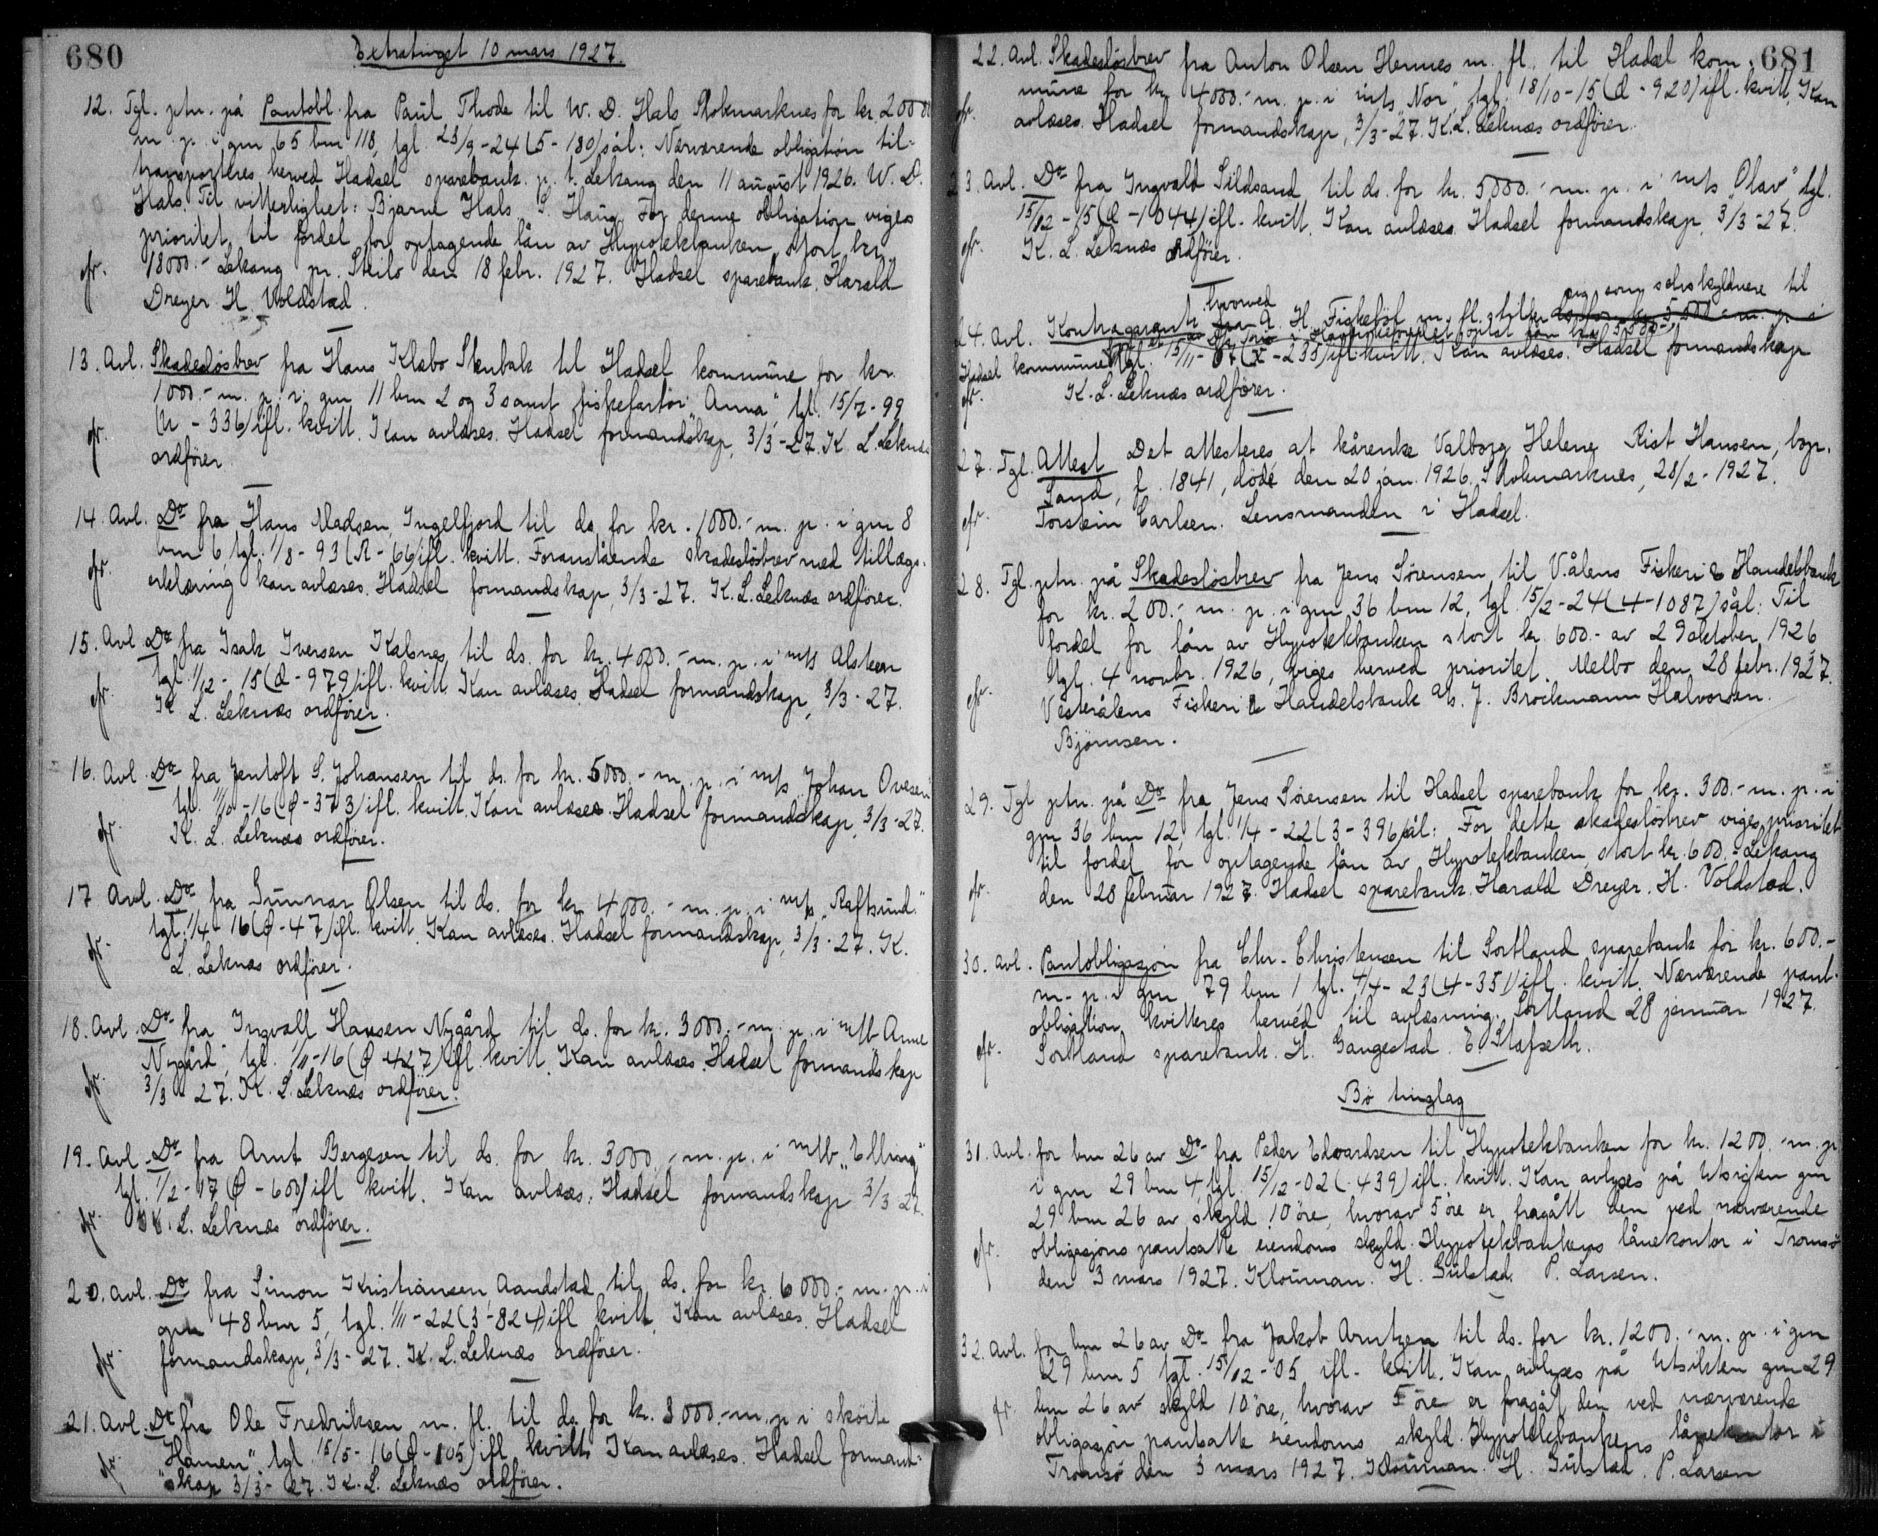 680
Extratinget 10 mars 1927.
12. Tgl. ptn. på Pantobl. fra Paul Thode til W. D. Hals Stokmarknes for kr. 20000
m. p. i gnr 65 bnr 118, tgl. 23/9-24 (5-180) sål: Nærværende obligation til-
transporteres herved Hadsel sparebank. p. t. Lekang den 11 august 1926. W. D.
Hals. Til vitterlighet: Bjarne Hals. Haug. For denne obligation viges
prioritet til fordel for optagende lån av Hypotekbanken, stort kr.
18000.- Lekang pr. Skilo den 18 febr. 1927. Hadsel sparebank. Harald
Dreyer. H. Voldstad.
13. Avl. Skadesløsbrev fra Hans Klæbo Stenbak til Hadsel kommune for kr.
1000.- m. p. i gnr 11 bnr 2 og 3 samt fiskefartøi "Anna", tgl. 15/7-99
(N - 336) ifl. kvitt. Kan avlæses. Hadsel formandskap, 3/3-27. K. L. Leknæs
ordfører.
14. Avl. Do fra Hans Madsen, Ingelfjord til ds. for kr. 1000.- m. p. i gnr 8
bnr 6, tgl. 1/8-93 (R-66) ifl. kvitt. Foranstående skadesløsbrev med tillægs-
erklæring kan avlæses. Hadsel formandskap, 3/3-27. K. L. Leknæs ordfører.
15. Avl. Do fra Isak Iversen Kalsnes til ds. for kr. 4000.- m. p. i m/k Alsken
tgl. 1/12-15 (Q-979) ifl. kvitt. Kan avlæses. Hadsel formandskap, 3/3-27.
K. L. Leknæs ordfører.
16. Avl. Do fra Jentoft S. Johansen til ds. for kr. 5000.- m. p. i m/k Johan Ovesen
tgl. 11/10-16 (Q-373) ifl. kvitt. Kan avlæses. Hadsel formandskap, 3/3-27.
K. L. Leknæs ordfører.
17. Avl. Do fra Gunnar Olsen til ds. for kr. 4000.- m. p. i m/k "Raftsund"
tgl. 1/4-16 (Q-47) ifl. kvitt. Kan avlæses. Hadsel formandskap, 3/3-27. K.
L. Leknæs ordfører.
18. Avl. Do fra Ingvall Hansen Nygård til ds. for kr. 3000.- m. p. i m/k Anne
Nygård, tgl. 1/11-16 (Q 427) ifl. kvitt. Kan avlæses. Hadsel formandskap
3/3-27. K. L. Leknæs ordfører.
19. Avl. Do fra Arnt Bergesen til ds. for kr. 3000.- m. p. i m/b "Elling"
tgl. 1/2-17 (Q-600) ifl kvitt. Kan avlæses. Hadsel formandskap 3/3-27.
K. L. Leknæs ordfører.
20. avl. Do fra Simon Kristiansen Aandstad til ds. for kr. 6000.- m. p. i
gnr 48 bnr 5, tgl. 1/11-22 (3-824) ifl kvitt. Kan avlæses. Hadsel
formandskap, 3/3-27. K. L. Leknæs ordfører.
21. Avl. Do fra Ole Fredriksen m. fl. til ds. for kr. 3000.- m. p. i skøite
Hamen", tgl. 15/5-16 (Q-105) ifl. kvitt. Kan avlæses. Hadsel formand-
skap 3/3-27. K. L. Leknæs ordfører.
681
22. Avl. Skadesløsbrev fra Anton Olsen Hennes m. fl. til Hadsel kom-
mune for kr. 4000.- m. p. i m/k "Nor" tgl. 18/10-15 (Q-920) ifl. kvitt. Kan
avlæses. Hadsel formandskap, 3/3-27. K. L. Leknæs ordfører.
23. Avl. Do fra Ingvald Sildsand til ds. for kr. 5000.- m. p. i m/k "Olav" tgl.
15/12-15 (Q-1044) ifl. kvitt. Kan avlæses. Hadsel formandskap, 3/3-27.
K. L. Leknæs ordfører.
24. Avl. Kontragaranti hvorved A. H. Fiskefjord m. fl. stiller sig som selvskyldnere til
Hadsel kommune tgl. 15/11- ifl. kvitt. Kan avlæses. Hadsel formandskap
K. L. Leknæs ordfører.
27. Tgl. Attest Det attesteres at kårenke Valborg Helene Rist Hansen, bop.
Sand, f. 1841, døde den 20 jan. 1926. Stokmarknes, 28/2-1927.
Torstein Carlsen. Lensmanden i Hadsel.
28. Tgl. ptn. på Skadesløsbrev fra Jens Sørensen til V.ålens Fiskeri & Handelsbank
for kr. 200.- m. p. i gnr 36 bnr 12, tgl. 15/2-24 (4-1087) sål: Til
fordel for lån av Hypotekbanken stort kr. 600.- av 29 oktober 1926
tgl. 4 novbr. 1926, viges herved prioritet. Melbo den 28 febr. 1927.
Vesterålens Fiskeri & Handelsbank A/s. J. Brockmann Halvorsen.
Bjørnsen.
29. Tgl ptn. på Do fra Jens Sørensen til Hadsel sparebank for kr. 300.- m. p. i
gnr 36 bnr 12, tgl. 1/4-22 (3-396) sål: For dette skadesløsbrev viges prioritet
til fordel for optagende lån av Hypotekbanken, stort kr. 600.- Lekang
den 28 februar 1927. Hadsel sparebank. Harald Dreyer. H. Voldstad.
30. avl. Pantobligasjon fra Chr. Christensen til Sortland sparebank for kr. 600.-
m. p. i gnr 79 bnr 1 tgl. 4/4-23 (4-351) ifl. kvitt. Nærværende pant-
obligation kvitteres herved til avlæsning. Sortland 28 januar 1927.
Sortland sparebank. H. Gangestad. E Slafseth.
Bø tinglag
31. Avl. for bnr 26 av Do fra Peder Edvardsen til Hypotekbanken for kr. 1200.- m. p.
i gnr 29 bnr 4, tgl. 15/12-02 (439) ifl. kvitt. Kan avlyses på Utsigten gnr
29 bnr 26 av skyld 10 øre, hvorav 5 øre er fragått den ved nærværende
obligasjons pantsatte eiendoms skyld. Hypotekbankens lånekontor i Tromsø
den 3 mars 1927. Klouman. H. Gulstad. P. Larsen.
32. Avl. for bnr 26 av Do fra Jakob Arntzen til ds. for kr. 1200.- m. p. i gnr
29 bnr 5 tgl. 15/12-05 ifl. kvitt. Kan avlyses på Utsikten gnr 29
bnr 26 av skyld 10 øre, hvorav 5 øre er fragåt den ved nærværende
obligasjon pantsatte eiendoms skyld. Hypotekbankens lånekontor i
Tromsø den 3 mars 1927. Klouman. H. Gulstad. P. Larsen